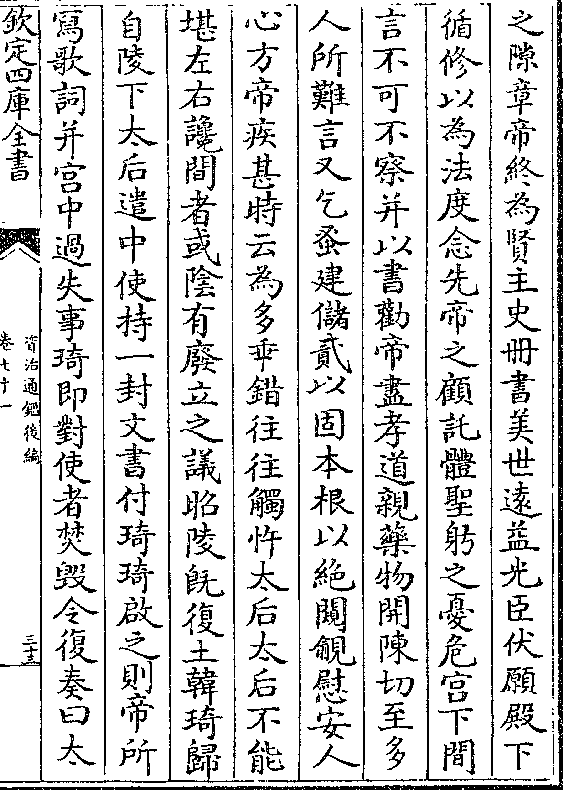 之隙章帝終為賢主史冊書美世遠益光臣伏願殿下
循修以為法度念先帝之顧託體聖躬之憂危宮下間
言不可不察并以書勸帝盡孝道親藥物開陳切至多
人所難言又乞蚤建儲貳以固本根以絕闚覦慰安人
心方帝疾甚時云為多乖錯往往觸忤太后太后不能
堪左右讒間者或陰有廢立之議昭陵既復土韓琦歸
自陵下太后遣中使持一封文書付琦琦啟之則帝所
寫歌詞并宮中過失事琦即對使者焚毀令復奏曰太
欽定四庫全書
資治通鑑後編
卷七十一
三十三